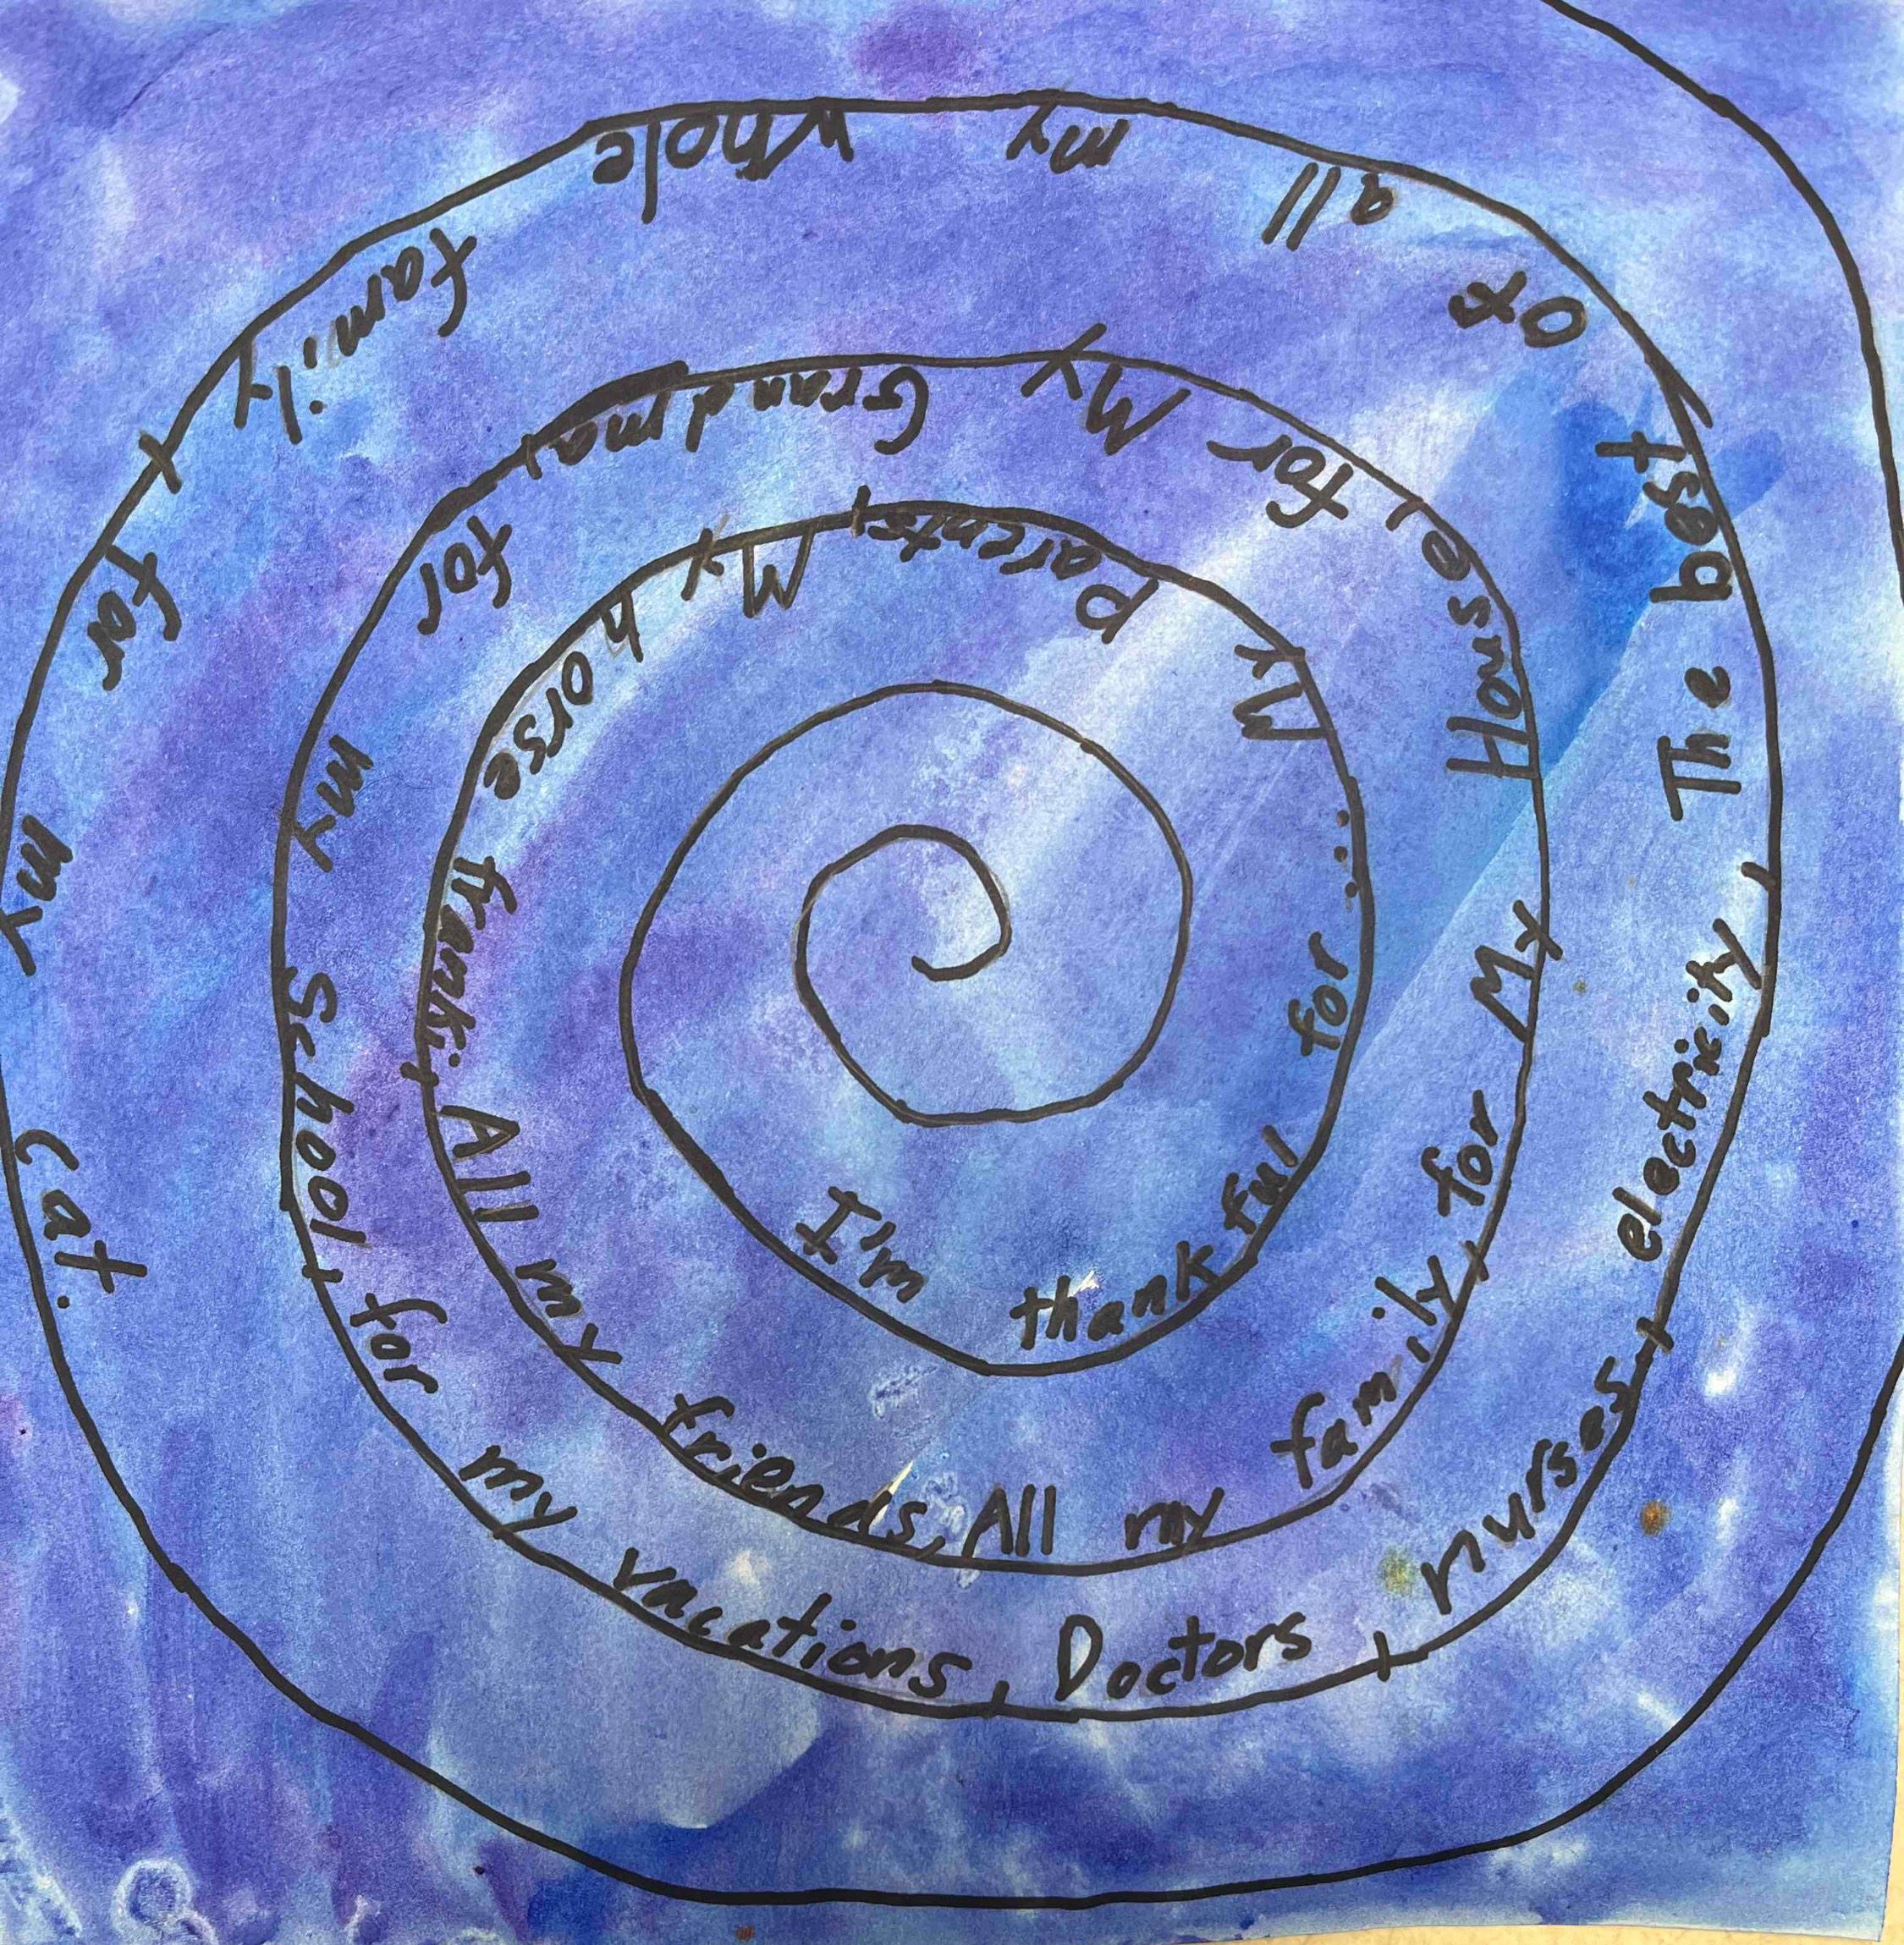 I'm thankful for... My Parents, My horse franki, All my friends, All my family, for My House, for My Grandma, for my School, for my vacations, Doctors, nurses, electricity, The best of all my whole family, for my cat.